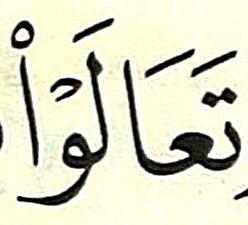 تَعَالَوْا۟